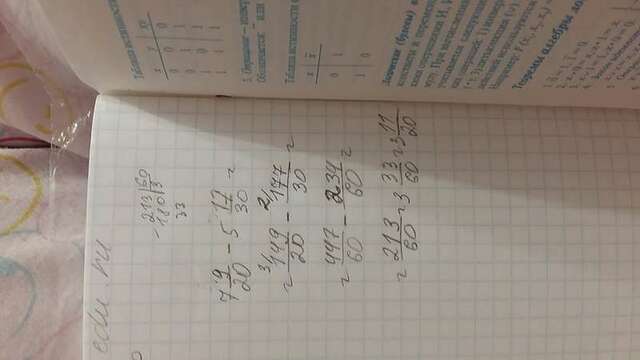 edu.ru
213|60
- 180|3
33
7 9/20 - 5 17/30 =
= 3/149/20 - 2/177/30 =
= 447/60 - 234/60 =
= 213/60 = 3 33/60 = 3 11/20
Таблица истинности
x y xy
0 0 0
0 1 1
1 0 1
1 1 1
3. Операция – инвер
Обозначается ‾ или
Таблица истинности
x x̄
0 1
1 0
Логические (булевы)
константы и перемен
операциями И, И
При вычислении
учитывается следующи
операций: 1) инверс
действий используются
Например: F(x₁, x₂, x₃)
Теоремы алгебры ло